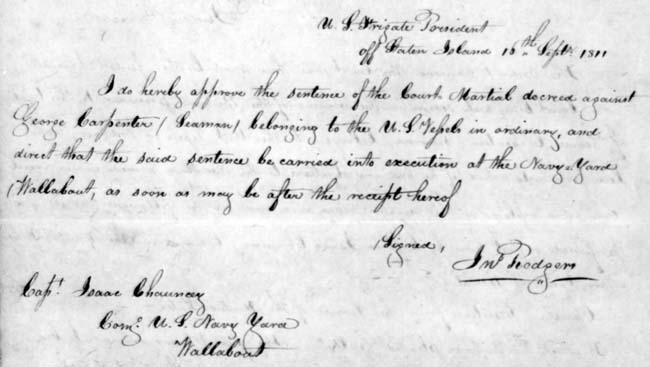 U. S. Frigate President
off Staten Island 16th Septr. 1811
I do hereby approve the sentence of the Court Martial decreed against
George Carpenter (Seaman) belonging to the U. S. Vessels in ordinary, and
direct that the said sentence be carried into execution at the Navy-Yard
(Wallabout, as soon as may be after the receipt hereof
(Signed,
Jno. Rodgers
Capt. Isaac Chauncey
Comg. U. S. Navy Yard
Wallabout